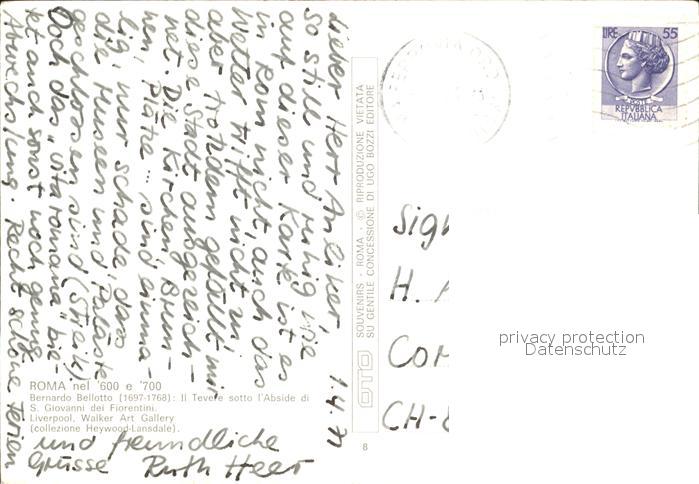 1.4.71
Lieber Herr Anliker!
So still und ruhig wie
auf dieser Karte ist es
in Rom nicht, auch das
Wetter trifft nicht zu!
aber trotzdem gefällt mir
diese Stadt ausgezeich-
net. Die Kirchen, Brun-
nen, Plätze ... sind einma-
lig, nur schade, dass
die Museen und Paläste
geschlossen sind (Streik)
Doch das "vita romana" bie-
tet auch sonst noch genug
Abwechslung. Recht schöne Ferien
und freundliche
Grüsse Ruth Heer
ROMA nel '600 e '700
Bernardo Bellotto (1697-1768): Il Tevere sotto l'Abside di
S. Giovanni dei Fiorentini.
Liverpool, Walker Art Gallery
(collezione Heywood-Lansdale).
OTO
SOUVENIRS - ROMA - © RIPRODUZIONE VIETATA
SU GENTILE CONCESSIONE DI UGO BOZZI EDITORE
8
LIRE 55
POSTE
REPVBBLICA
ITALIANA
H. A
CH-8
privacy protection
Datenschutz